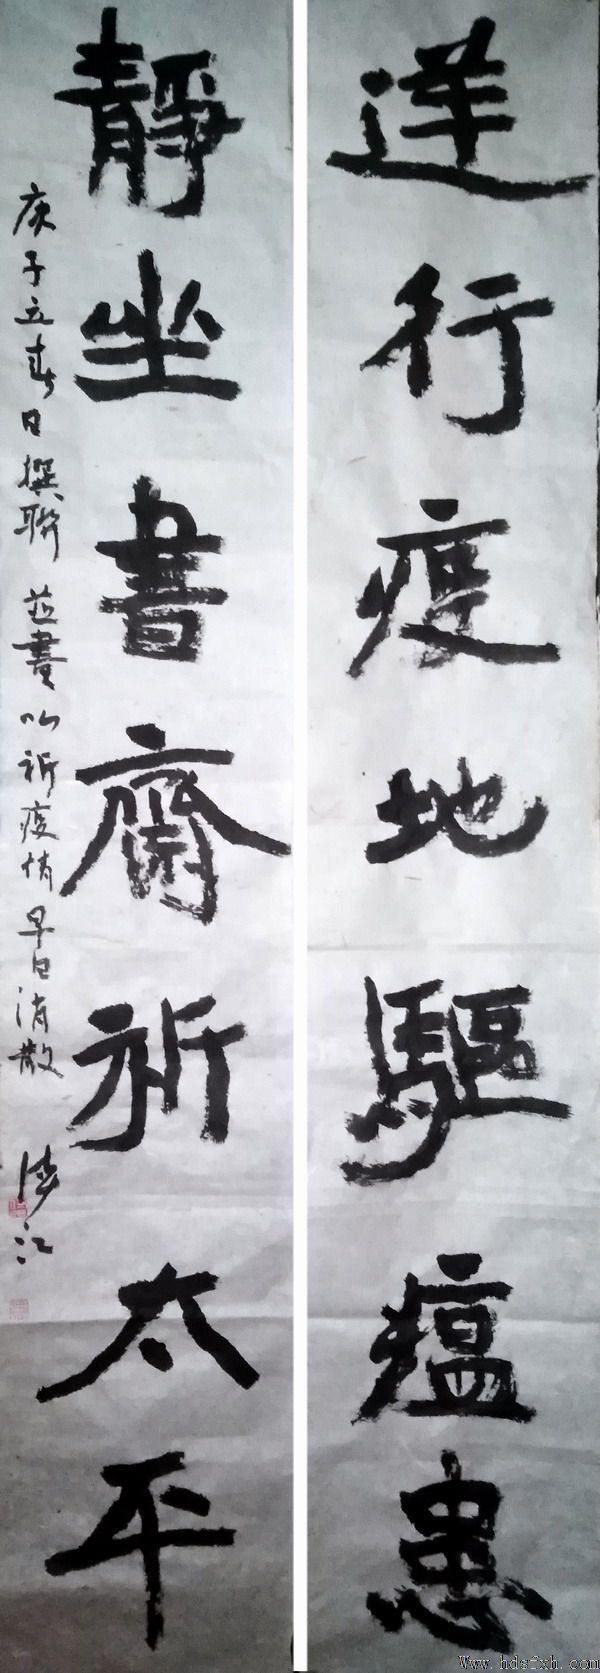 逆行疫地驅瘟患
靜坐書齋祈太平
庚子立春日撰聯並書以祈疫情早日消散
江
Www.hdsfxh.com